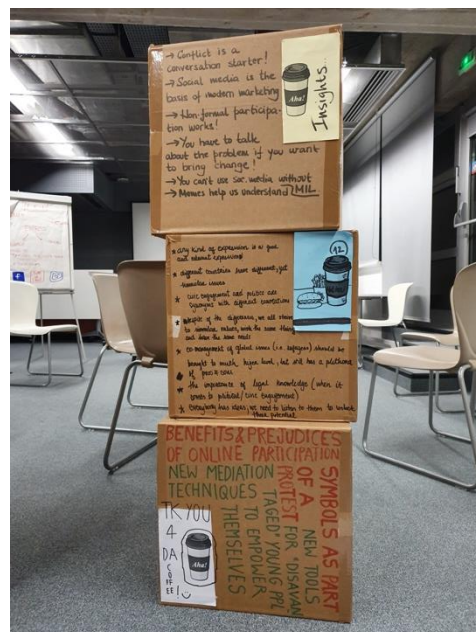 → Conflict is a
conversation starter!
→ Social media is the
basis of modern marketing
→ Non-formal participa-
tion works!
→ You have to talk
about the problem if you want
to bring change!
→ You can't use soc. media without
→ Memes help us understand MIL
Aha!
Insights...
* any kind of expression is a good
and relevant expression!
* different countries have different, yet
similar issues
* civic engagement and politics are
synonyms with different
* despite of the differences, we all
to similar values, work the same things
and have the same
* co-management of global issues (i.e. refugees) should be
brought to much higher level, but still has a plethora
of pros & cons
* the importance of legal knowledge (when it
comes to political/civic engagement)
* everybody has ideas, we need to listen to them to unlock
their potential
12
BENEFITS & PREJUDICES
OF ONLINE PARTICIPATION
NEW MEDIATION
TECHNIQUES
SYMBOLS AS PART
OF A
PROTEST
NEW TOOLS
FOR "DISAVAN
TAGED" YOUNG PPL
TO EMPOWER
THEMSELVES
TK YOU
4
DA
COFFEE!
Aha!